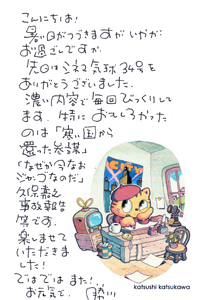 こんにちは!
暑い日がつづきますがいかが
お過ごしですか。
先日はシネマ気球34号を
ありがとうございました.
濃い内容で毎回びっくりして
ます. 特におもしろかった
のは「寒い国から
還った参謀」
「なぜか今なお
ジャンゴなのだ」
事故報告
等です.
楽しませて
いただきま
した!
ではでは また!
お元気で.
katsushi katsukawa